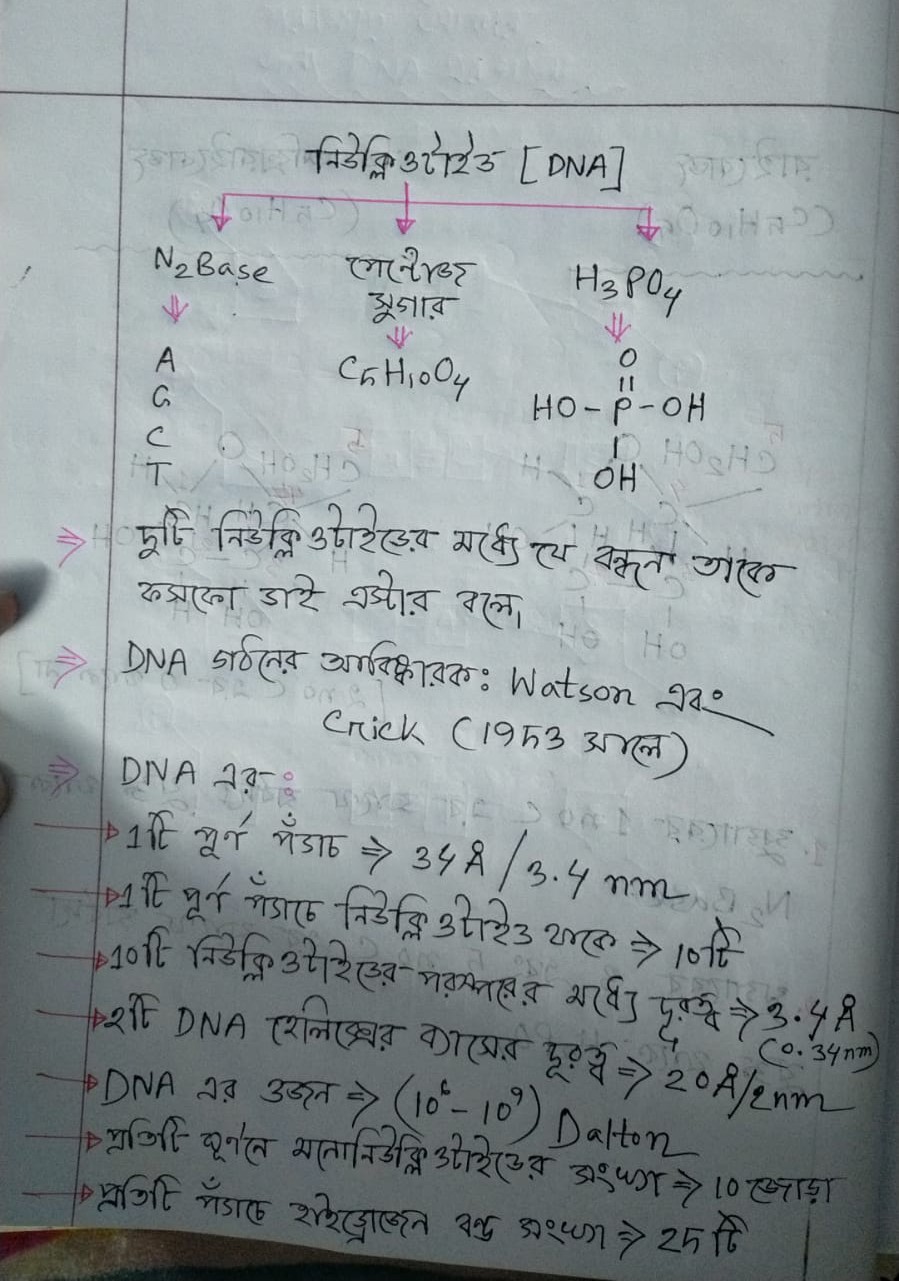 নিউক্লিওটাইড [DNA]
N2Base পেন্টোজ সুগার H3PO4
A C5H10O4 O
G HO-P-OH
C OH
T
দুটি নিউক্লিওটাইডের মধ্যে যে বন্ধন তাকে
ফসফো ডাই এস্টার বলে,
DNA গঠনের আবিষ্কারক: Watson এবং
Crick (1953 সালে)
DNA এর-:
1টি পূর্ণ প্যাঁচ ⇒ 34Å/3.4 nm
1টি পূর্ণ প্যাঁচে নিউক্লিওটাইড থাকে ⇒ 10টি
10টি নিউক্লিওটাইডের পরস্পরের মধ্যে দূরত্ব ⇒ 3.4Å
(0.34nm)
2টি DNA হেলিক্সের ব্যাসের দূরত্ব ⇒ 20Å/2nm
DNA এর ওজন ⇒ (10^6 - 10^9) Dalton
প্রতিটি ঘূর্ণনে মনোনিউক্লিওটাইডের সংখ্যা ⇒ 10 জোড়া
প্রতিটি প্যাঁচে হাইড্রোজেন বন্ড সংখ্যা ⇒ 25টি